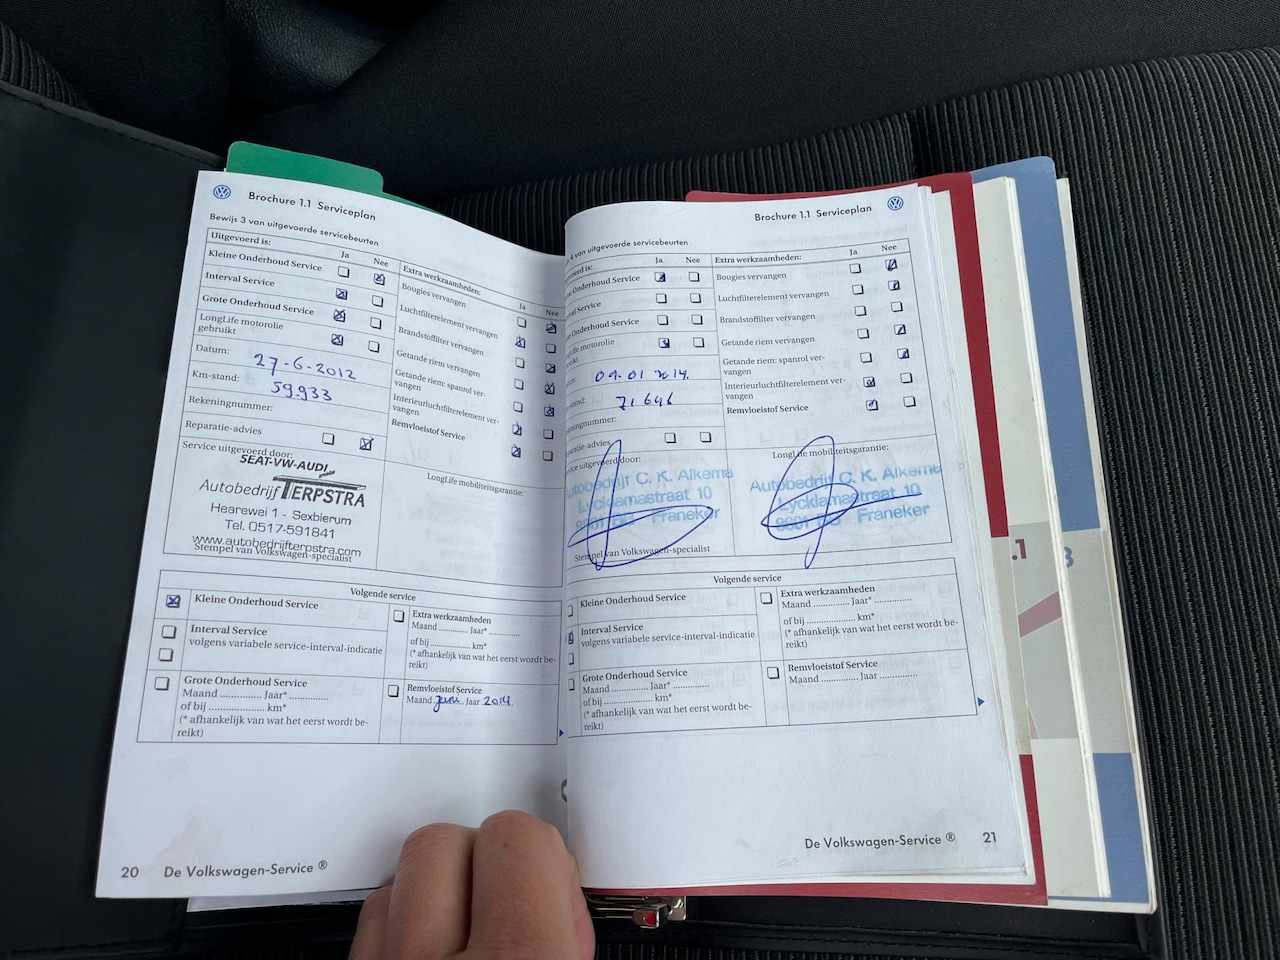 Brochure 1.1 Serviceplan
Bewijs 3 van uitgevoerde servicebeurten
Uitgevoerd is:
Ja
Nee
Kleine Onderhoud Service
Interval Service
Grote Onderhoud Service
LongLife motorolie
gebruikt
Datum: 27-6-2012
Km-stand: 59.933
Rekeningnummer:
Reparatie-advies
Service uitgevoerd door:
SEAT-VW-AUDI
Autobedrijf TERPSTRA
Hearewei 1 - Sexbierum
Tel. 0517-591841
www.autobedrijfterpstra.com
Stempel van Volkswagen-specialist
Extra werkzaamheden:
Ja
Nee
Bougies vervangen
Luchtfilterelement vervangen
Brandstoffilter vervangen
Getande riem vervangen
Getande riem: spanrol ver-
vangen
Interieurluchtfilterelement ver-
vangen
Remvloeistof Service
LongLife mobiliteitsgarantie:
Volgende service
Kleine Onderhoud Service
Interval Service
volgens variabele service-interval-indicatie
Grote Onderhoud Service
Maand .............. Jaar* ..............
of bij .................. km*
(* afhankelijk van wat het eerst wordt be-
reikt)
Extra werkzaamheden
Maand .............. Jaar* ..............
of bij .................. km*
(* afhankelijk van wat het eerst wordt be-
reikt)
Remvloeistof Service
Maand Juni Jaar 2014
20 De Volkswagen-Service ®
Brochure 1.1 Serviceplan
4 van uitgevoerde servicebeurten
voerd is:
Ja
Nee
Onderhoud Service
Service
Onderhoud Service
motorolie
09-01 2014.
stand: 71646
Service uitgevoerd door:
Autobedrijf C. K. Alkema
Lycklamastraat 10
Franeker
Stempel van Volkswagen-specialist
Extra werkzaamheden:
Ja
Nee
Bougies vervangen
Luchtfilterelement vervangen
Brandstoffilter vervangen
Getande riem vervangen
Getande riem: spanrol ver-
vangen
Interieurluchtfilterelement ver-
vangen
Remvloeistof Service
LongLife mobiliteitsgarantie:
Autobedrijf C. K. Alkema
Lycklamastraat 10
Franeker
Volgende service
Kleine Onderhoud Service
Interval Service
volgens variabele service-interval-indicatie
Grote Onderhoud Service
Maand .............. Jaar* ..............
of bij .................. km*
(* afhankelijk van wat het eerst wordt be-
reikt)
Extra werkzaamheden
Maand .............. Jaar* ..............
of bij .................. km*
(* afhankelijk van wat het eerst wordt be-
reikt)
Remvloeistof Service
Maand .............. Jaar ..............
De Volkswagen-Service ® 21
.1
3